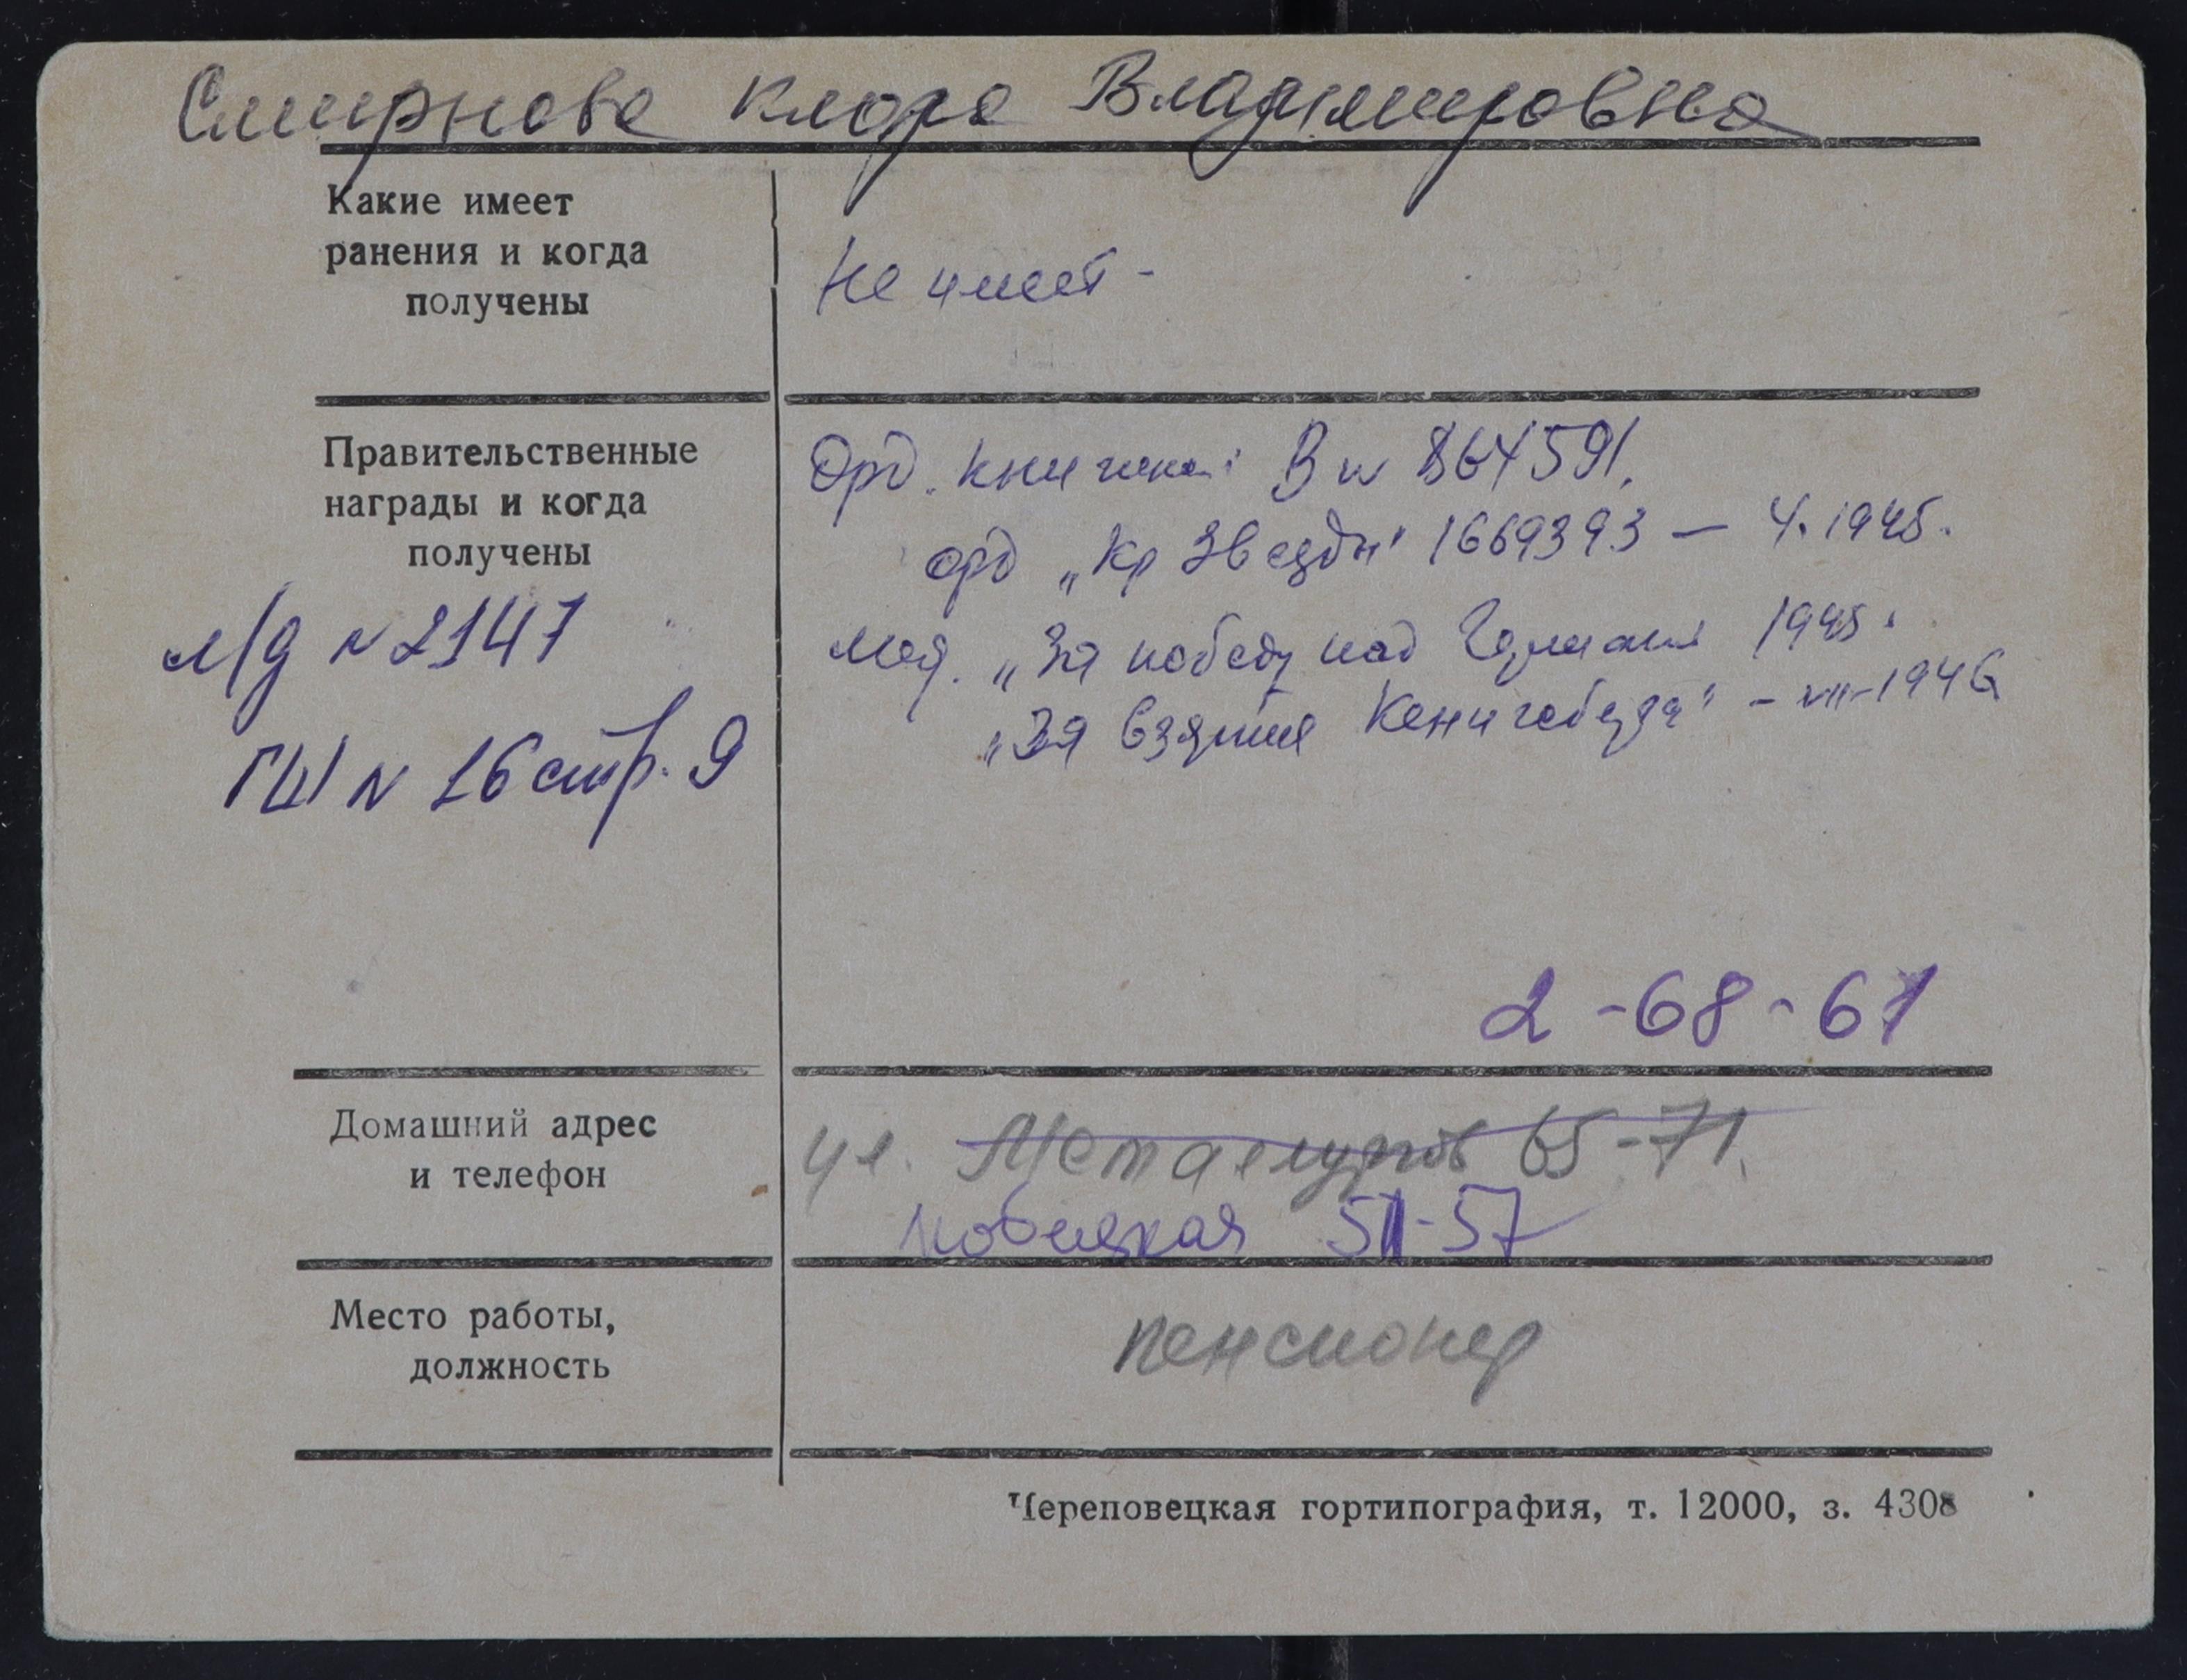 Смирнова Клара Владимировна
Какие имеет
ранения и когда
получены
Не имеет -
Правительственные
награды и когда
получены
Орд. книжка: В № 864591,
орд „Кр Звезды" 1669393 — 4. 1945.
мед. „За победу над Германией 1945.
„За взятие Кенигсберга" - VII-1946
л/д № 2147
ГШ № 16 стр. 9
2-68-61
Домашний адрес
и телефон
ул. Металлургов 65-71.
51-57
Место работы,
должность
пенсионер
Череповецкая гортипография, т. 12000, з. 4308